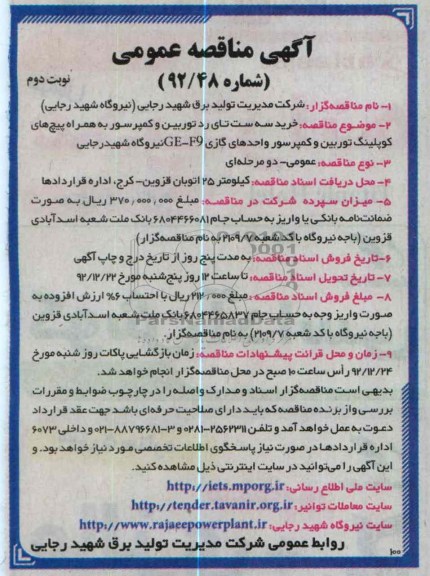 آگهی مناقصه عمومی
(شماره ۹۲/۴۸)
نوبت دوم
۱- نام مناقصه‌گزار: شرکت مدیریت تولید برق شهید رجایی (نیروگاه شهید رجایی)
۲- موضوع مناقصه: خرید سه ست تای رد توربین و کمپرسور به همراه پیچ‌های
کوپلینگ توربین و کمپرسور واحدهای گازی GE-F9 نیروگاه شهید رجایی
۳- نوع مناقصه: عمومی- دو مرحله‌ای
۴- محل دریافت اسناد مناقصه: کیلومتر ۲۵ اتوبان قزوین- کرج، اداره قراردادها
۵- میزان سپرده شرکت در مناقصه: مبلغ ۳۷۰,۰۰۰,۰۰۰ ریال به صورت
ضمانت‌نامه بانکی یا واریز به حساب جام ۶۸۰۴۴۶۶۰۸۱ بانک ملت شعبه اسدآبادی
قزوین (باجه نیروگاه با کد شعبه ۲۱۰۹/۷ به نام مناقصه‌گزار)
۶- تاریخ فروش اسناد مناقصه: به مدت پنج روز از تاریخ درج و چاپ آگهی
۷- تاریخ تحویل اسناد مناقصه: تا ساعت ۱۲ روز پنج‌شنبه مورخ ۹۲/۱۲/۲۲
۸- مبلغ فروش اسناد مناقصه: مبلغ ۲۱۲۰۰۰ ریال با احتساب ۶% ارزش افزوده به
صورت واریز وجه به حساب جام ۶۸۰۴۴۶۵۸۳۷ بانک ملت شعبه اسدآبادی قزوین
(باجه نیروگاه با کد شعبه ۲۱۰۹/۷) به نام مناقصه‌گزار.
۹- زمان و محل قرائت پیشنهادات مناقصه: زمان بازگشایی پاکات روز شنبه مورخ
۹۲/۱۲/۲۴ رأس ساعت ۱۰ صبح در محل مناقصه‌گزار انجام خواهد شد.
بدیهی است مناقصه‌گزار اسناد و مدارک واصله را در چارچوب ضوابط و مقررات
بررسی و از برنده مناقصه که باید دارای صلاحیت حرفه‌ای باشد جهت عقد قرارداد
دعوت به عمل خواهد آمد و تلفن ۲۵۶۲۳۱۱-۰۲۸۱ و ۳-۸۸۷۹۶۶۸۱-۰۲۱ و داخلی ۶۰۷۳
اداره قراردادها در صورت نیاز پاسخگوی اطلاعات تخصصی مورد نیاز خواهد بود. و
این آگهی را می‌توانید در سایت اینترنتی ذیل مشاهده کنید.
سایت ملی اطلاع رسانی: http://iets.mporg.ir
سایت معاملات توانیر: http://tender.tavanir.org.ir
سایت نیروگاه شهید رجایی: http://www.rajaeepowerplant.ir
روابط عمومی شرکت مدیریت تولید برق شهید رجایی
۱۰۰
ParsNamadData